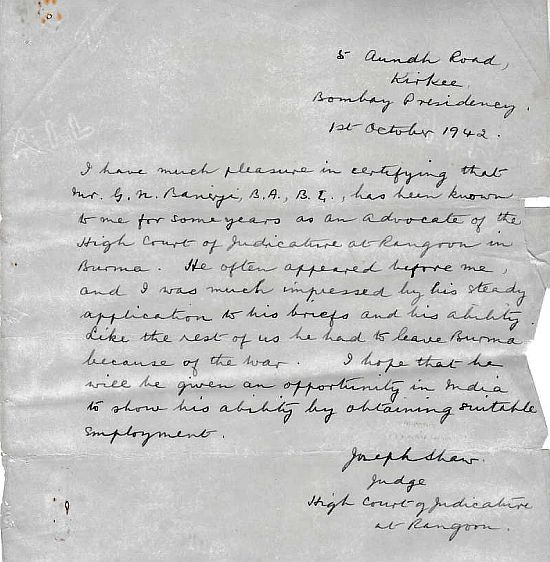 5 Aundh Road,
Kirkee.
Bombay Presidency.
1st October 1942.
I have much pleasure in certifying that
Mr. G. N. Banerji, B.A., B.L., has been known
to me for some years as an advocate of the
High Court of Judicature at Rangoon in
Burma. He often appeared before me,
and I was much impressed by his steady
application to his briefs and his ability.
Like the rest of us he had to leave Burma
because of the war. I hope that he
will be given an opportunity in India
to show his ability by obtaining suitable
employment.
Joseph Shaw.
Judge
High Court of Judicature
at Rangoon.